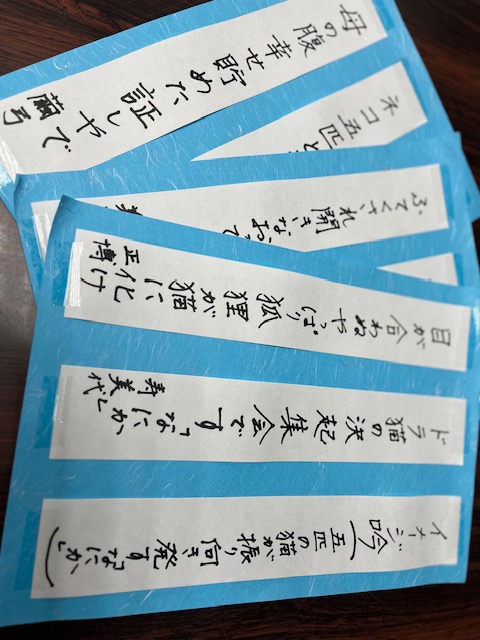 イメージ吟（五匹の猫が振り向き発す「なにか」）
ドラ猫の決起集会です「なにか」
寿美代
目が合わぬやっぱり狐狸が猫に化け
正博
ふてくされ開きなおって
ネコ五匹と
母の腹幸せ貯めた証しやで
繭弓